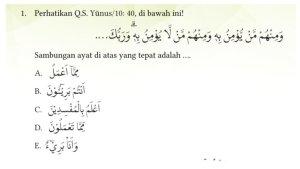 1. Perhatikan Q.S. Yūnus/10: 40, di bawah ini!
وَمِنْهُمْ مَّنْ يُّؤْمِنُ بِهٖ وَمِنْهُمْ مَّنْ لَّا يُؤْمِنُ بِهٖۗ وَرَبُّكَ....
Sambungan ayat di atas yang tepat adalah ....
A. مِمَّآ اَعْمَلُ
B. اَنْتُمْ بَرِيْۤـُٔوْنَ
C. اَعْلَمُ بِالْمُفْسِدِيْنَ
D. مِمَّا تَعْمَلُوْنَ
E. وَاَنَا۠ بَرِيْۤءٌ